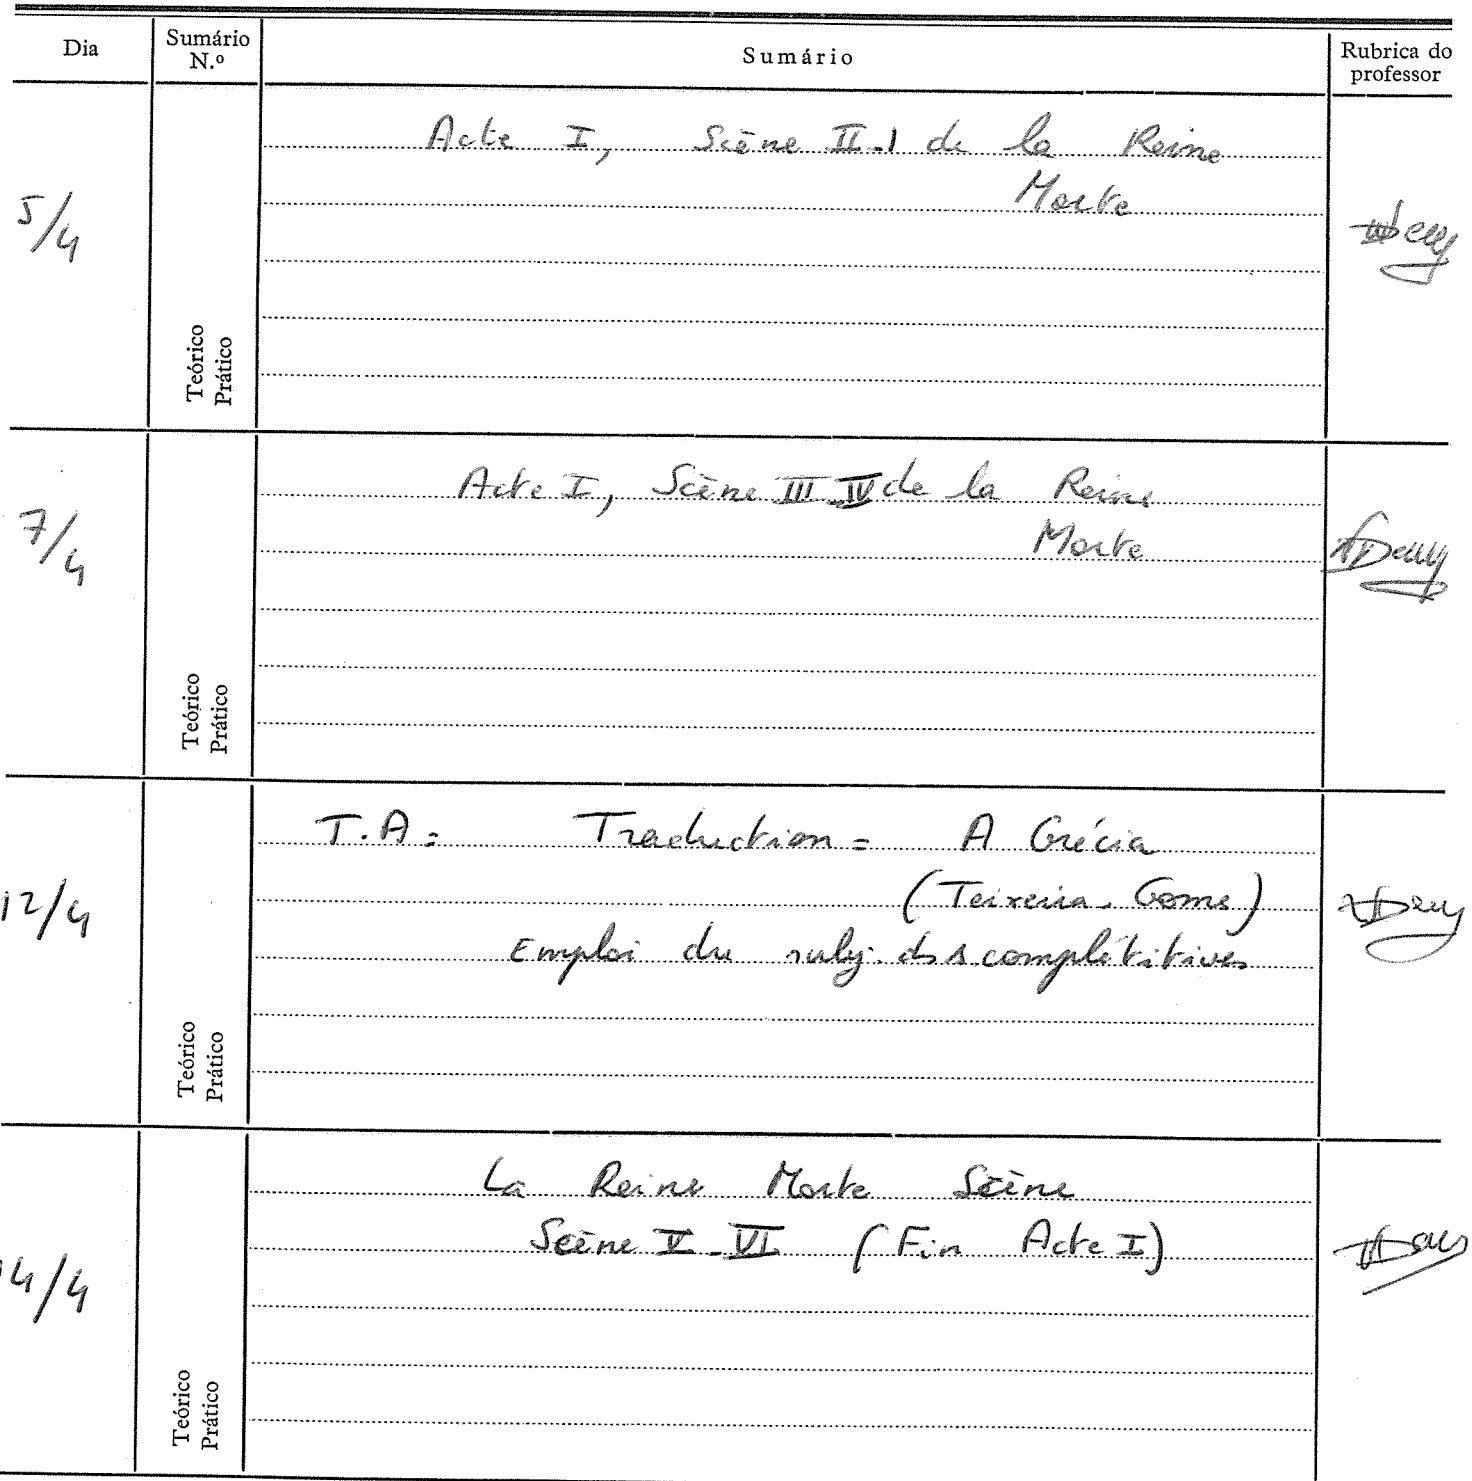 Dia
Sumário N.º
Sumário
Rubrica do professor
5/4
Teórico
Prático
Acte I, Scène II-1 de la Reine
Morte
7/4
Teórico
Prático
Acte I, Scène III-IV de la Reine
Morte
12/4
Teórico
Prático
T.A: Traduction = A Grécia
(Teixeira-Gomes)
Emploi du subj. ds complétitives
14/4
Teórico
Prático
La Reine Morte Scène
Scène V-VI (Fin Acte I)